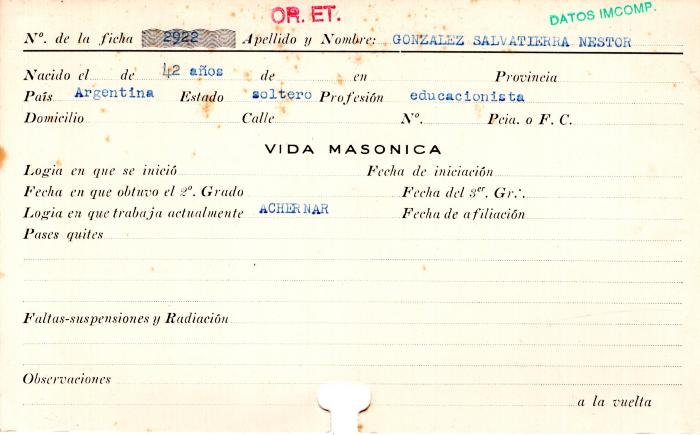 OR. ET.
DATOS IMCOMP.
Nº. de la ficha 2922 Apellido y Nombre: GONZALEZ SALVATIERRA NESTOR
Nacido el de 42 años de en Provincia
País Argentina Estado soltero Profesión educacionista
Domicilio Calle Nº. Pcia. o F. C.
VIDA MASONICA
Logia en que se inició Fecha de iniciación
Fecha en que obtuvo el 2º. Grado Fecha del 3er. Gr∴
Logia en que trabaja actualmente ACHERNAR Fecha de afiliación
Pases quites
Faltas-suspensiones y Radiación
Observaciones
a la vuelta